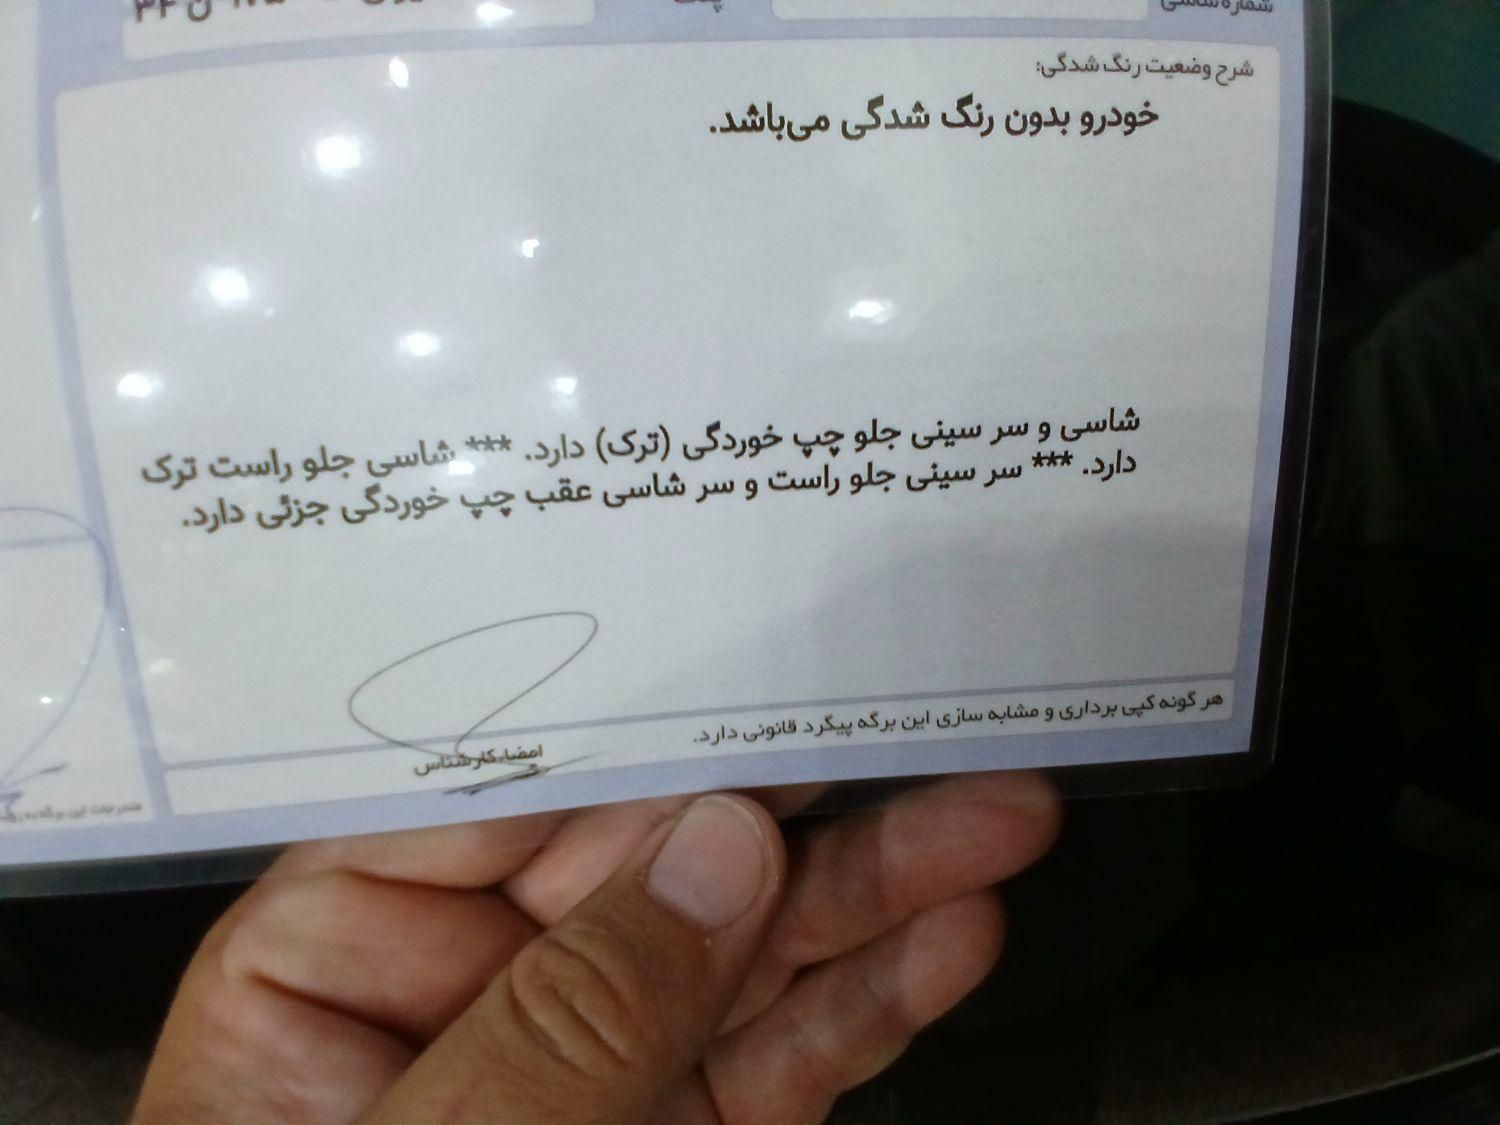 شماره شاسی
شرح وضعیت رنگ شدگی:
خودرو بدون رنگ شدگی می‌باشد.
شاسی و سر سینی جلو چپ خوردگی (ترک) دارد. *** شاسی جلو راست ترک
دارد. *** سر سینی جلو راست و سر شاسی عقب چپ خوردگی جزئی دارد.
هر گونه کپی برداری و مشابه سازی این برگه پیگرد قانونی دارد.
امضاء کارشناس
مندرجات این برگه به